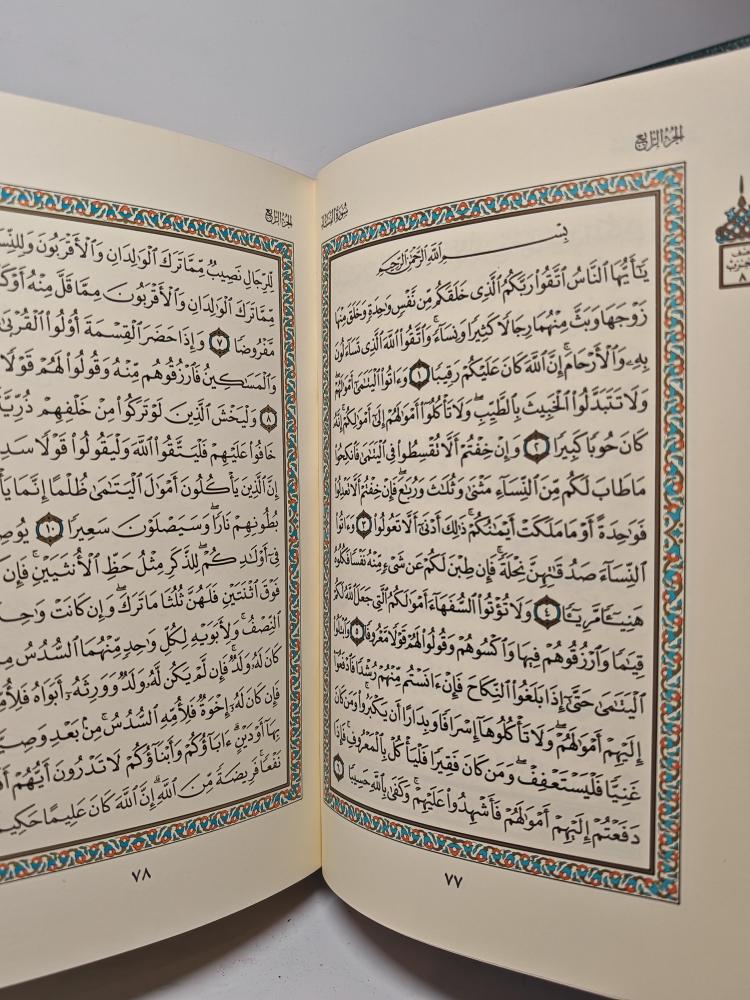 الجزء الرابع
سورة النساء
بِسْمِ اللَّهِ الرَّحْمَٰنِ الرَّحِيمِ
يَا أَيُّهَا النَّاسُ اتَّقُوا رَبَّكُمُ الَّذِي خَلَقَكُم مِّن نَّفْسٍ وَاحِدَةٍ وَخَلَقَ مِنْهَا
زَوْجَهَا وَبَثَّ مِنْهُمَا رِجَالًا كَثِيرًا وَنِسَاءً ۚ وَاتَّقُوا اللَّهَ الَّذِي تَسَاءَلُونَ
بِهِ وَالْأَرْحَامَ ۚ إِنَّ اللَّهَ كَانَ عَلَيْكُمْ رَقِيبًا ١ وَآتُوا الْيَتَامَىٰ أَمْوَالَهُمْ ۖ
وَلَا تَتَبَدَّلُوا الْخَبِيثَ بِالطَّيِّبِ ۖ وَلَا تَأْكُلُوا أَمْوَالَهُمْ إِلَىٰ أَمْوَالِكُمْ ۚ إِنَّهُ
كَانَ حُوبًا كَبِيرًا ٢ وَإِنْ خِفْتُمْ أَلَّا تُقْسِطُوا فِي الْيَتَامَىٰ فَانكِحُوا
مَا طَابَ لَكُم مِّنَ النِّسَاءِ مَثْنَىٰ وَثُلَاثَ وَرُبَاعَ ۖ فَإِنْ خِفْتُمْ أَلَّا تَعْدِلُوا
فَوَاحِدَةً أَوْ مَا مَلَكَتْ أَيْمَانُكُمْ ۚ ذَٰلِكَ أَدْنَىٰ أَلَّا تَعُولُوا ٣ وَآتُوا
النِّسَاءَ صَدُقَاتِهِنَّ نِحْلَةً ۚ فَإِن طِبْنَ لَكُمْ عَن شَيْءٍ مِّنْهُ نَفْسًا فَكُلُوهُ
هَنِيئًا مَّرِيئًا ٤ وَلَا تُؤْتُوا السُّفَهَاءَ أَمْوَالَكُمُ الَّتِي جَعَلَ اللَّهُ لَكُمْ
قِيَامًا وَارْزُقُوهُمْ فِيهَا وَاكْسُوهُمْ وَقُولُوا لَهُمْ قَوْلًا مَّعْرُوفًا ٥ وَابْتَلُوا
الْيَتَامَىٰ حَتَّىٰ إِذَا بَلَغُوا النِّكَاحَ فَإِنْ آنَسْتُم مِّنْهُمْ رُشْدًا فَادْفَعُوا
إِلَيْهِمْ أَمْوَالَهُمْ ۖ وَلَا تَأْكُلُوهَا إِسْرَافًا وَبِدَارًا أَن يَكْبَرُوا ۚ وَمَن كَانَ
غَنِيًّا فَلْيَسْتَعْفِفْ ۖ وَمَن كَانَ فَقِيرًا فَلْيَأْكُلْ بِالْمَعْرُوفِ ۚ فَإِذَا
دَفَعْتُمْ إِلَيْهِمْ أَمْوَالَهُمْ فَأَشْهِدُوا عَلَيْهِمْ ۚ وَكَفَىٰ بِاللَّهِ حَسِيبًا ٦
٧٧
الجزء الرابع
لِّلرِّجَالِ نَصِيبٌ مِّمَّا تَرَكَ الْوَالِدَانِ وَالْأَقْرَبُونَ
مِّمَّا تَرَكَ الْوَالِدَانِ وَالْأَقْرَبُونَ مِمَّا قَلَّ مِنْهُ
مَّفْرُوضًا ٧ وَإِذَا حَضَرَ الْقِسْمَةَ أُولُو الْقُرْبَىٰ
وَالْمَسَاكِينُ فَارْزُقُوهُم مِّنْهُ وَقُولُوا لَهُمْ قَوْلًا
٨ وَلْيَخْشَ الَّذِينَ لَوْ تَرَكُوا مِنْ خَلْفِهِمْ
خَافُوا عَلَيْهِمْ فَلْيَتَّقُوا اللَّهَ وَلْيَقُولُوا قَوْلًا
إِنَّ الَّذِينَ يَأْكُلُونَ أَمْوَالَ الْيَتَامَىٰ ظُلْمًا إِنَّمَا
بُطُونِهِمْ نَارًا ۖ وَسَيَصْلَوْنَ سَعِيرًا ١٠
فِي أَوْلَادِكُمْ ۖ لِلذَّكَرِ مِثْلُ حَظِّ الْأُنثَيَيْنِ ۚ فَإِن
فَوْقَ اثْنَتَيْنِ فَلَهُنَّ ثُلُثَا مَا تَرَكَ ۖ وَإِن كَانَتْ
النِّصْفُ ۚ وَلِأَبَوَيْهِ لِكُلِّ وَاحِدٍ مِّنْهُمَا السُّدُسُ
كَانَ لَهُ وَلَدٌ ۚ فَإِن لَّمْ يَكُن لَّهُ وَلَدٌ وَوَرِثَهُ أَبَوَاهُ
فَإِن كَانَ لَهُ إِخْوَةٌ فَلِأُمِّهِ السُّدُسُ ۚ مِن بَعْدِ
بِهَا أَوْ دَيْنٍ ۗ آبَاؤُكُمْ وَأَبْنَاؤُكُمْ لَا تَدْرُونَ أَيُّهُمْ
نَفْعًا ۚ فَرِيضَةً مِّنَ اللَّهِ ۗ إِنَّ اللَّهَ كَانَ عَلِيمًا
٧٨